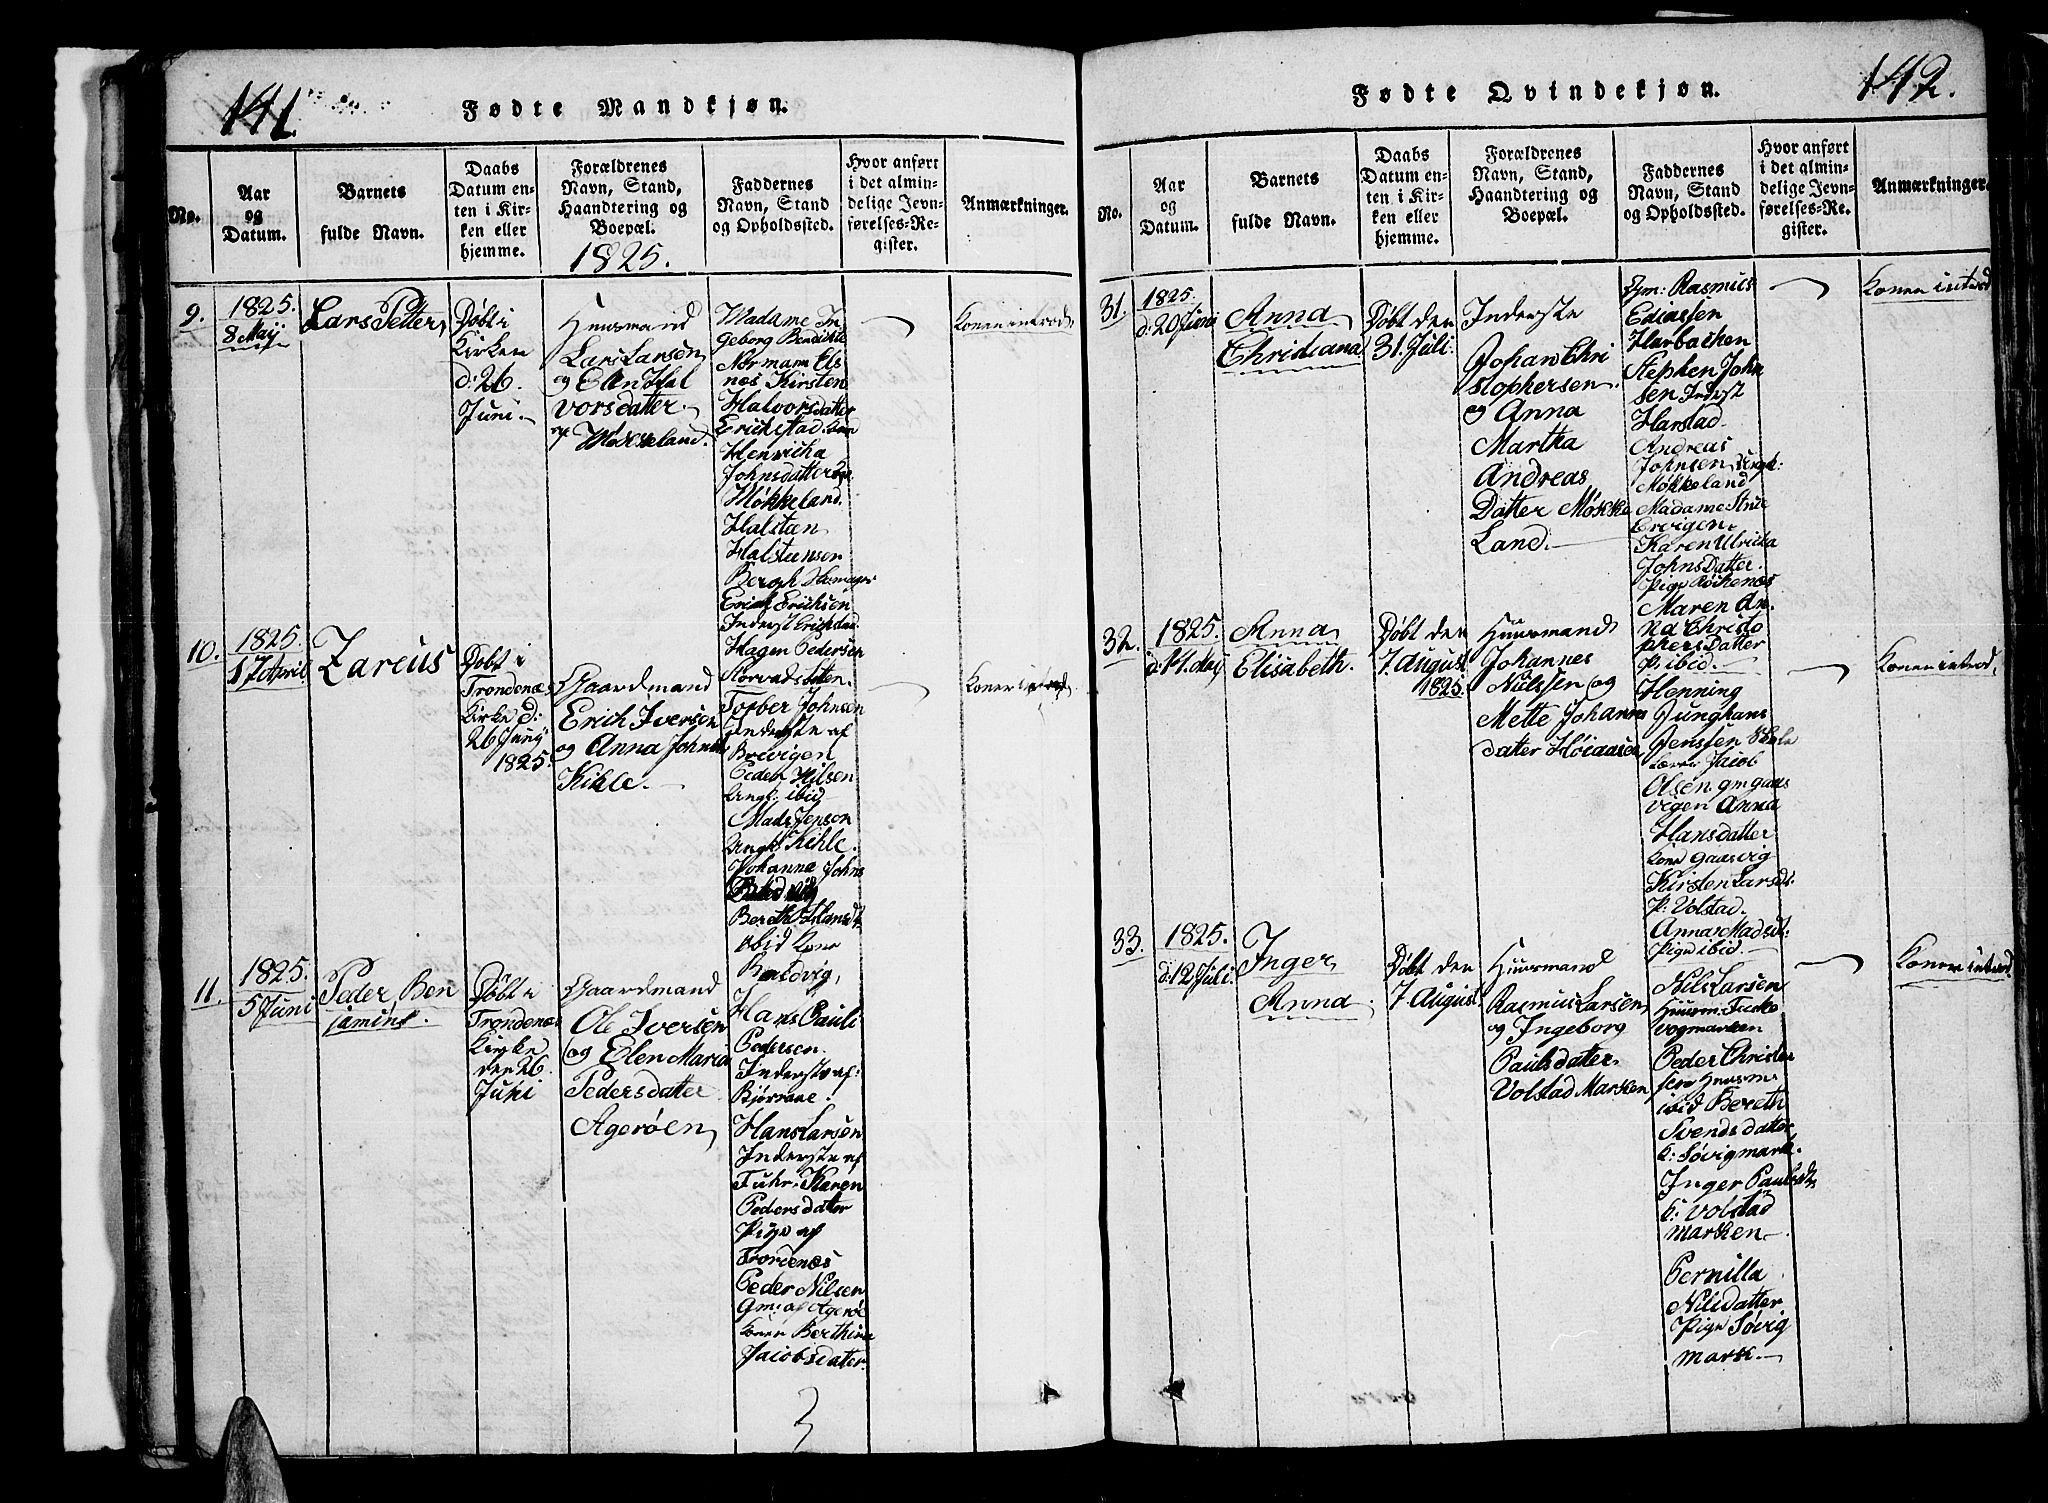 141
Fødte Mandkjøn.
No.
Aar
og
Datum.
Barnets
fulde Navn.
Daabs
Datum en-
ten i Kir-
ken eller
hjemme.
Forældrenes
Navn, Stand,
Haandtering og
Boepæl.
1825.
Faddernes
Navn, Stand
og Opholdssted.
Hvor anført
i det almin-
delige Jevn-
førelses-Re-
gister.
Anmærkninger.
9.
1825.
8 Maÿ
Lars Petter
Døbt i
Kirken
d: 26.
Juni.
Huusmand
Lars Larsen
og Elen Hal
vorsdatter
af Møkkeland.
Madame In
geborg Bendicte
Normann Els
nes Kirsten
Halvorsdatter
Erichstad
Henricha
Johnsdatter
Møkkeland.
Halsten
Halsteensen
Bergh
Erich Erichsen
Inderst Erichstad
Konen introd.
10.
1825.
17 April
Zarcus
Døbt i
Trondenæs
Kirke d:
26 Junÿ
1825.
Gaardmand
Erich Iversen
og Anna Johnsd.
Kihle.
Hagen Pedersen
Torber Johnsen
Inderste af
Bredvigen
Peder Nilsen
Ungk: ibid
Mads Jenson
Ungk: Kihle.
Johanna Johns
Bredvig
Bereth Hansd.
ibid Kone
Bredvig,
Konen introd.
11.
1825.
5 Juni
Peder Ben
jamins.
Døbt i
Trondenæs
Kirke
den 26
Juni
Gaardmand
Ole Iversen
og Elen Maria
Pedersdatter
Agerøen
Hans Pauli
Pedersen.
Inderste af:
Hans Larsen
Inderste af
Fuhr. Karen
Pedersdatter
Pige af
Trondenæs
Peder Nilsen
Gm: af Agerøe
Konen Berthine
Jacobsdatter.
142.
Fødte Qvindekjøn.
No.
Aar
og
Datum.
Barnets
fulde Navn.
Daabs
Datum en-
ten i Kir-
ken eller
hjemme.
Forældrenes
Navn, Stand,
Haandtering og
Boepæl.
Faddernes
Navn, Stand
og Opholdssted.
Hvor anført
i det almin-
delige Jevn-
førelses-Re-
gister.
Anmærkninger.
31.
1825.
d: 20 Juni
Anna
Christiana
Døbt den
31. Juli.
Inderste
Johan Chri
stophersen
og Anna
Martha
Andreas
Datter Møkke
Land.
Rasmus
Ediassen
Harbacken
Stephen John
sen Inderst
Harstad.
Andreas
Johnsen Ungk:
Møkkeland
Madame Strue
Ervigen.
Karen Ulricha
Johns Datter.
Pige Røkenæs
Maren An
na Christo
phers Datter
P. ibid.
Konen introd
32.
1825.
Anna
Elisabeth.
Døbt den
7. August
1825.
Huusmand
Johannes
Nielssen og
Mette Johannes
datter Høiaasen
Henning
Junghans
Jenssen Skole
Lærer Jacob
Olsen gm gaas
vigen Anna
Hansdatter
Kone Gaasvig
Kirsten Larsdt:
P: Volstad.
Anna Madsdt:
Pige ibid.
Konen introd.
33.
1825.
d: 12 Juli
Inger
Anna
Døbt den
7 August
Huusmand
Rasmus Larsen
og Ingeborg
Paulsdatter
Volstad Marken
Nils Larsen
Huusm. Fuske
vogmarken
Peder Christen
sen Huusm.
ibid Bereth
Svendsdatter
k: Søvigmark.
Inger Paulsdt.
k: Volstad
marken
Pernilla
Nilsdatter
Pige Søvig
mark.
Konen introd.